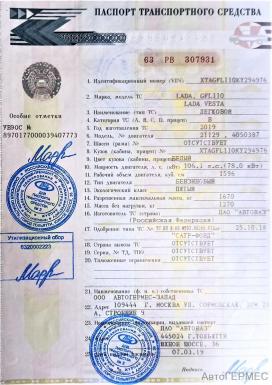 ПАСПОРТ ТРАНСПОРТНОГО СРЕДСТВА
63 РВ 307931
Особые отметки
1. Идентификационный номер (VIN) XTAGFL110KY294976
2. Марка, модель ТС LADA, GFL110
LADA VESTA
3. Наименование (тип ТС) ЛЕГКОВОЙ
4. Категория ТС (А, В, С, D, прицеп) В
5. Год изготовления ТС 2019
6. Модель, № двигателя 21129,
7. Шасси (рама) № ОТСУТСТВУЕТ
8. Кузов (кабина, прицеп) № XTAGFL110KY294976
9. Цвет кузова (кабины, прицепа) БЕЛЫЙ
10. Мощность двигателя, л. с. (кВт) 106.1 л.с.(78.0 кВт)
11. Рабочий объем двигателя, куб. см 1596
12. Тип двигателя БЕНЗИНОВЫЙ
13. Экологический класс ПЯТЫЙ
14. Разрешенная максимальная масса, кг 1670
15. Масса без нагрузки, кг 1270
16. Изготовитель ТС (страна) ПАО "АВТОВАЗ"
(Российская Федерация)
17. Одобрение типа ТС №
25.10.18
18. Страна вывоза ТС ОТСУТСТВУЕТ
19. Серия, № ТД, ТПО ОТСУТСТВУЕТ
20. Таможенные ограничения ОТСУТСТВУЕТ
Утилизационный сбор
21. Наименование (ф. и. о.) собственника ТС
ООО АВТОГЕРМЕС-ЗАПАД
22. Адрес 109444 Г. МОСКВА УЛ.
23. Наименование организации, выдавшей паспорт
ПАО "АВТОВАЗ"
24. Адрес 445024 Г.ТОЛЬЯТТИ
ШОССЕ, 36
25. Дата выдачи паспорта 07.03.19
АвтоГЕРМЕС